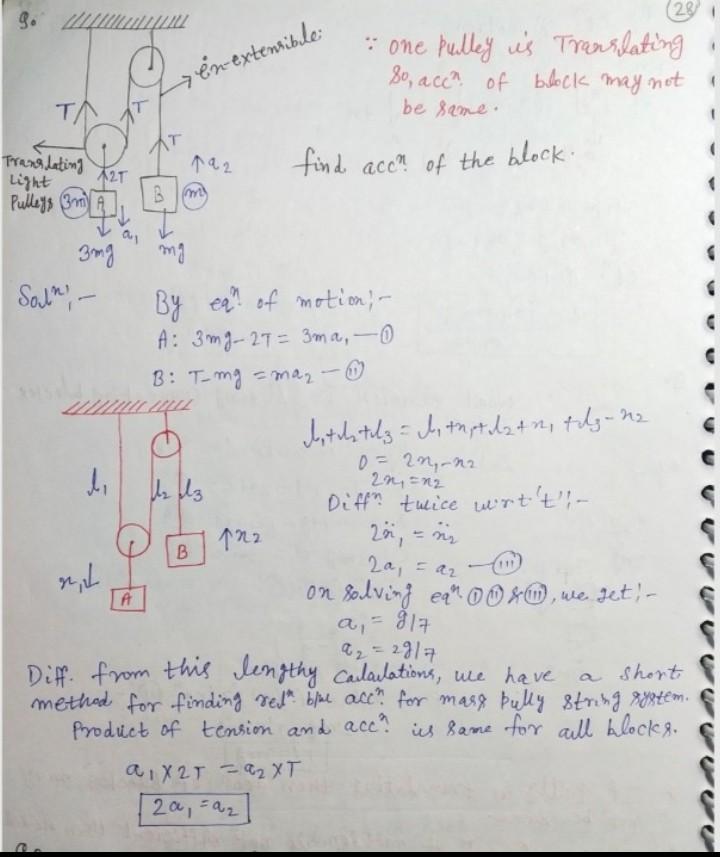 28
Q.
in-extensible.
∵ one pulley is Translating
So, accⁿ. of block may not
be same.
T
T
T
Translating
Light
Pulleys
2T
↑a2
find accⁿ. of the block.
3m
A
B
m
a1
3mg
mg
Solⁿ,-
By eqⁿ. of motion;-
A: 3mg-2T = 3ma1 — (I)
B: T-mg = ma2 — (II)
l1+l2+l3 = l1+x1+l2+x1+l3-x2
0 = 2x1-x2
2x1 = x2
Diffⁿ twice w.r.t 't';-
2ẍ1 = ẍ2
2a1 = a2 — (III)
l1
l2
l3
B
↑x2
x1↓
A
on solving eqⁿ (I) (II) & (III), we get;-
a1 = g/7
a2 = 2g/7
Diff. from this lengthy Calculations, we have a short
method for finding relⁿ b/w accⁿ. for mass pully string system.
Product of tension and accⁿ. is same for all blocks.
a1 X 2T = a2 X T
2a1 = a2